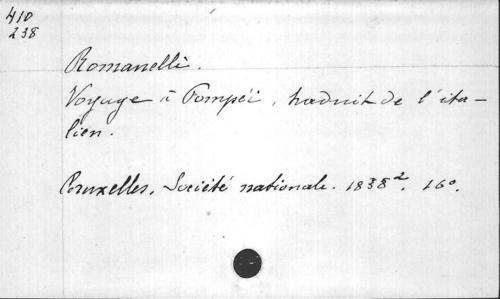 410
238
Romanelli.
Voyage à Pompéi, traduit de l'ita-
lien.
Bruxelles. Société nationale. 1838². 16°.